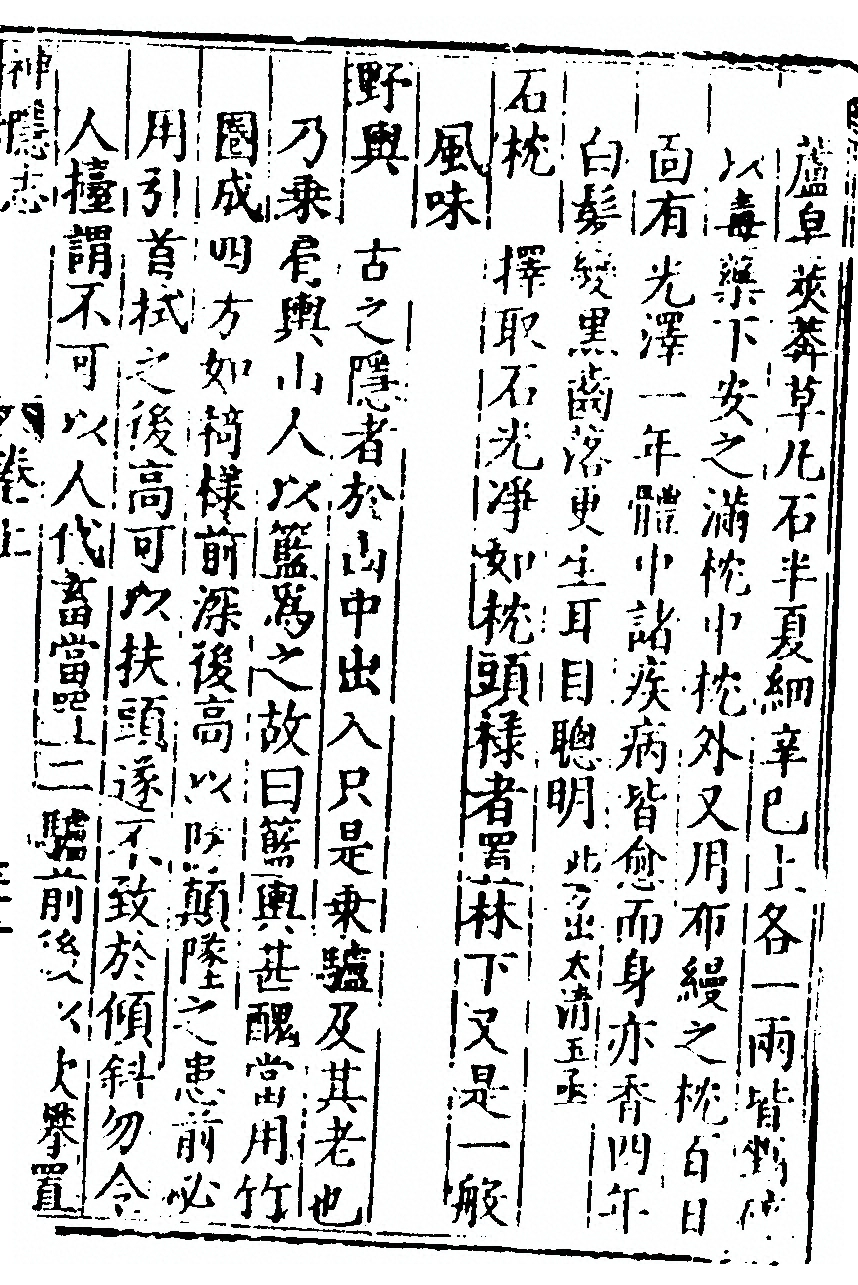 蘆皁莢莽草凡石半夏細辛巴上各一兩皆
以毒藥下安之滿枕中枕外又用布縵之枕百日
面有光澤一年體中諸疾病皆愈而身亦香四年
白髮變黒齒落更生耳目聰明此出太清玉函
石枕 擇取石光凈如枕頭樣者置林下又是一般
風味
野輿 古之隱者於山中出入只是乗驢及其老也
乃乗肩輿山人以籃爲之故曰籃輿甚醜當用竹
圈成四方如椅樣前深後高以防顛墜之患前必
用引首拭之後高可以扶頭遂不致於傾斜勿令
人擡謂不可以人代畜當置二驢前後以次轝置
神隱志 卷上